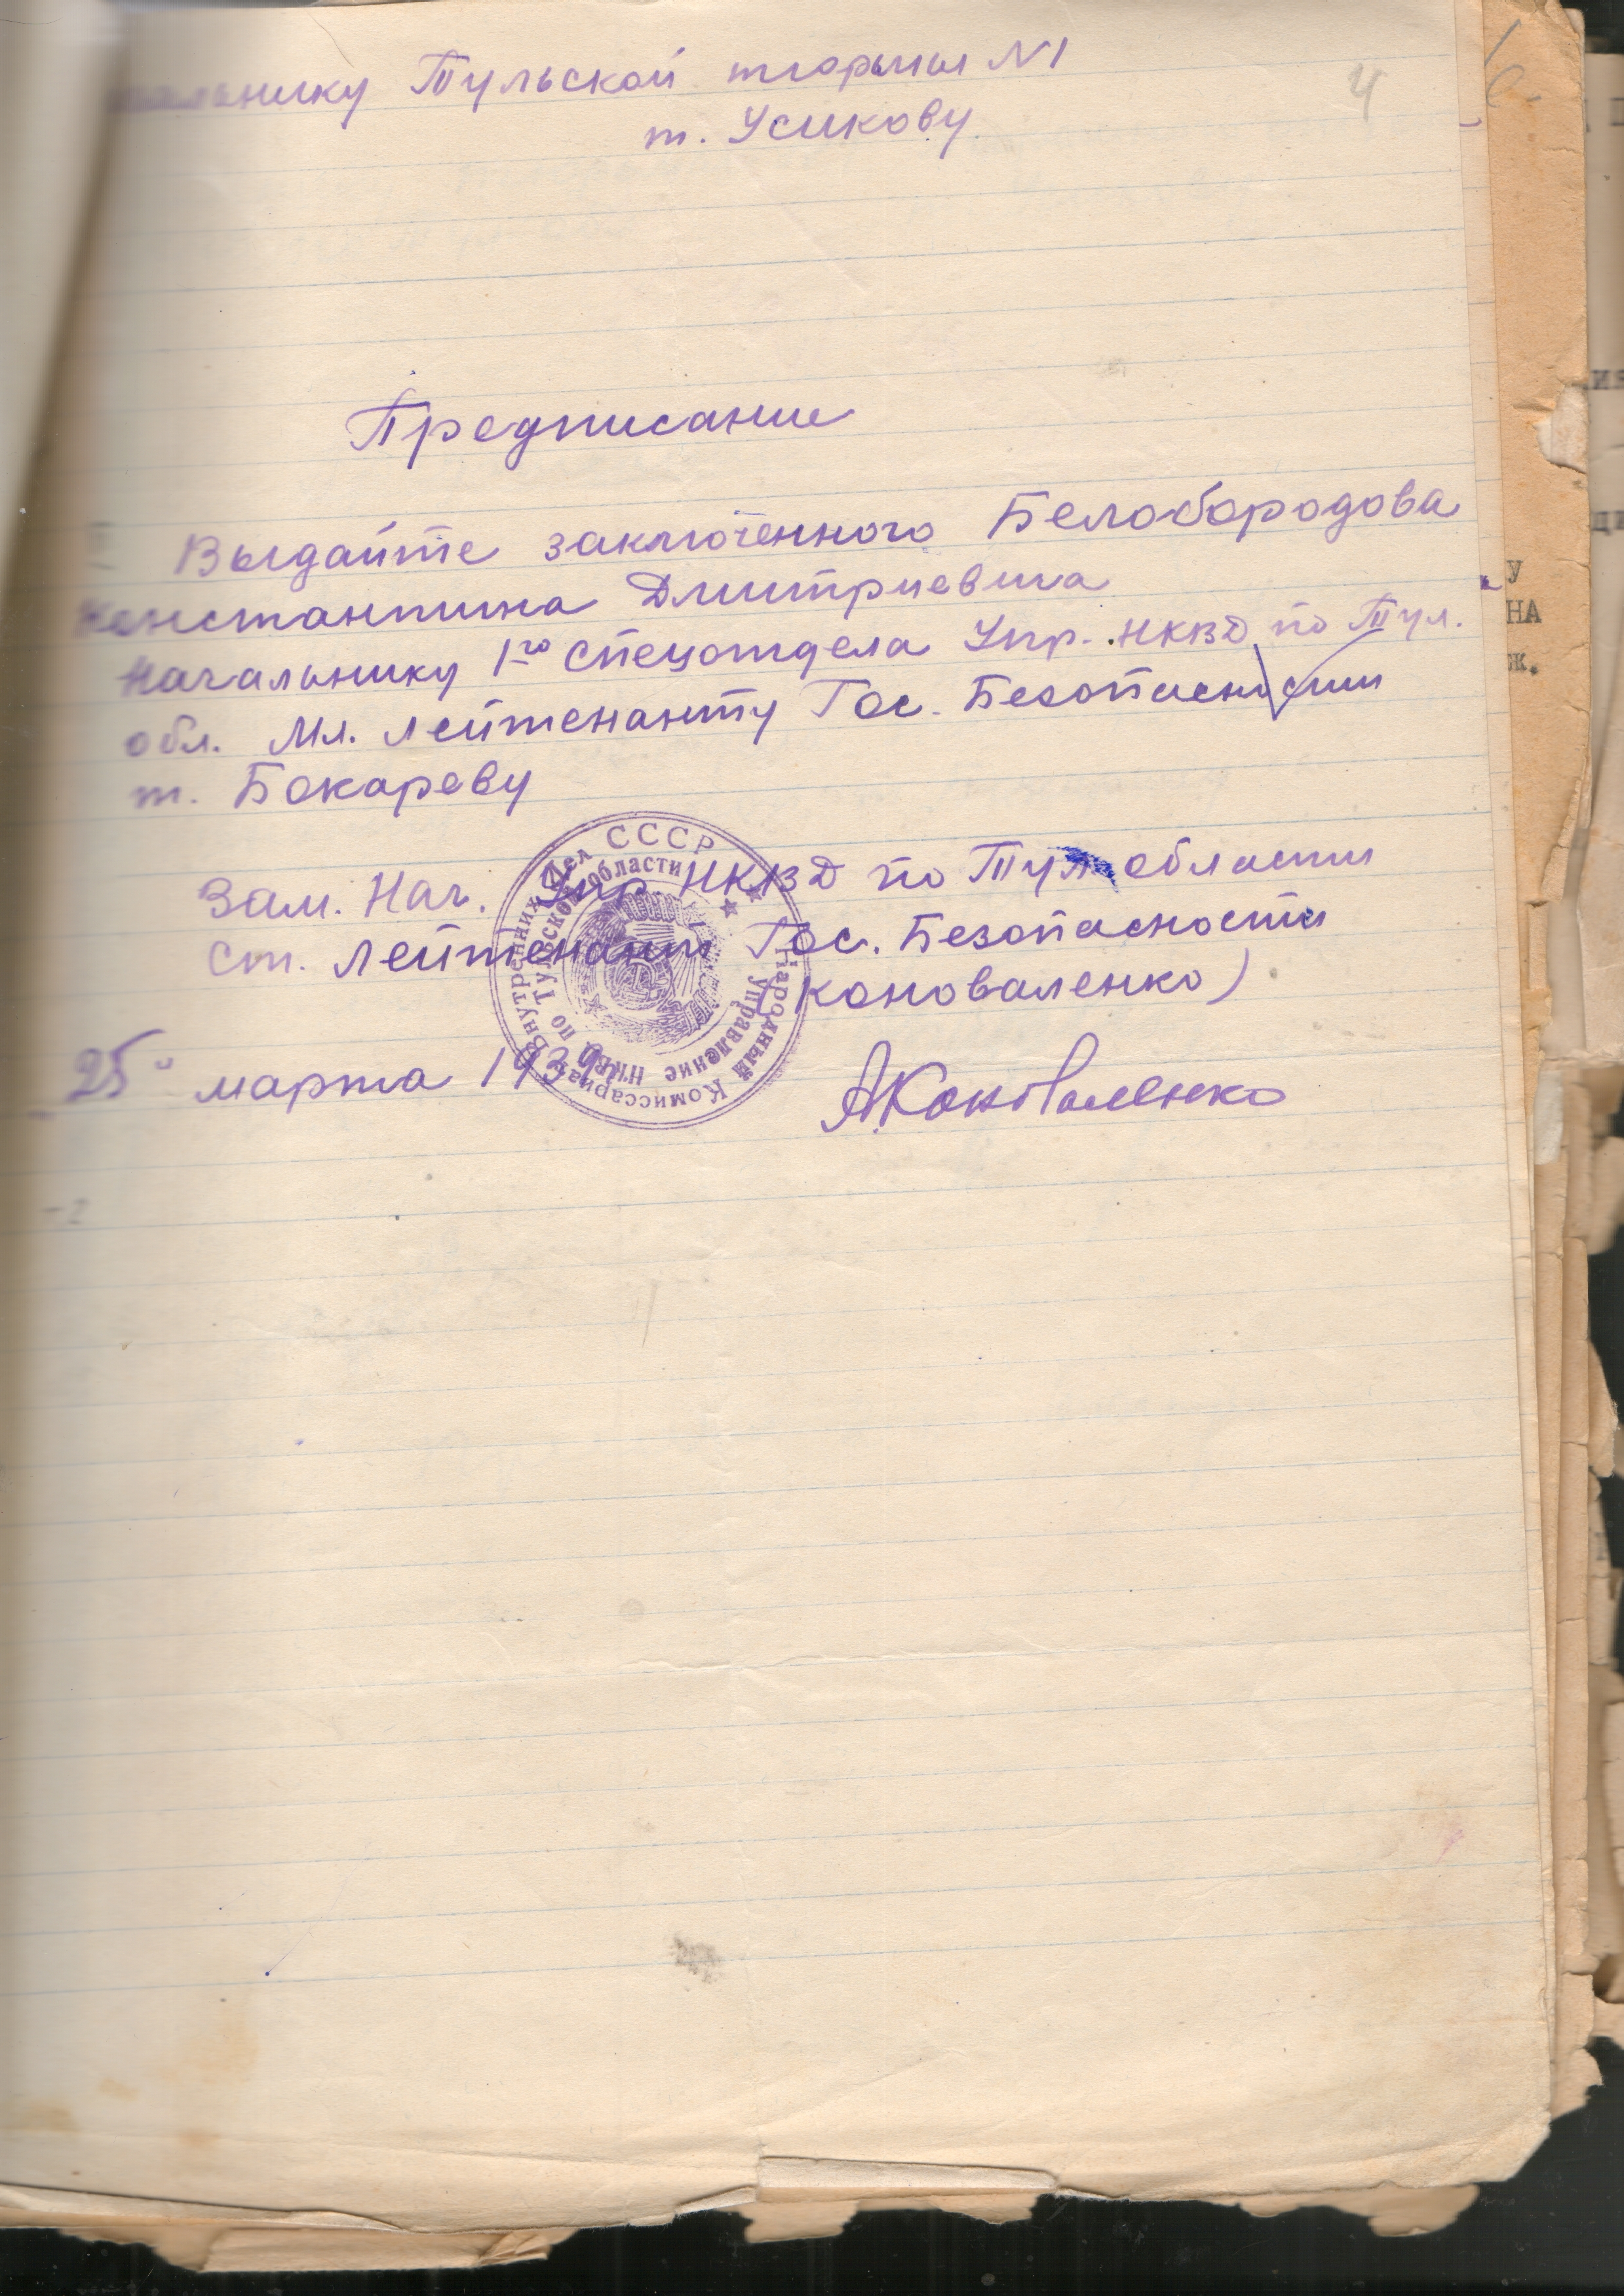 Начальнику Тульской тюрьмы N1
т. Усикову
4
Предписание
Выдайте заключенного Белобородова
Константина Дмитриевича
Начальнику 1го спецотдела Упр. НКВД по Тул.
обл. Мл. лейтенанту Гос. Безопасности
т. Бокареву
Зам. Нач. Упр. НКВД по Тул области
Ст. Лейтенант Гос. Безопасности
(Коноваленко)
25" марта 193
АКоноваленко
СССР Народный Комиссариат Внутренних Дел
Управление НКВД по Тульской области
У
НА
ж.